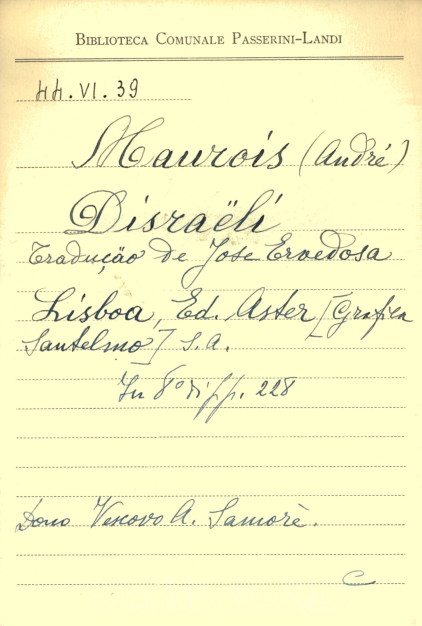 BIBLIOTECA COMUNALE PASSERINI-LANDI
44.VI.39
Maurois (André)
Disraëli
Tradução de Jose Ervedosa
Lisboa, Ed. Aster [Grafica
Santelmo] S.A.
In 8° di pp. 228
Dono Vescovo A. Samorè.
C